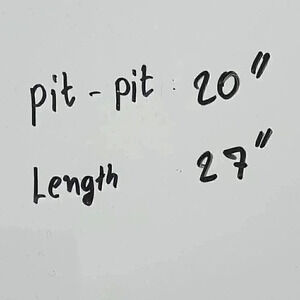 pit - pit : 20"
Length 27"